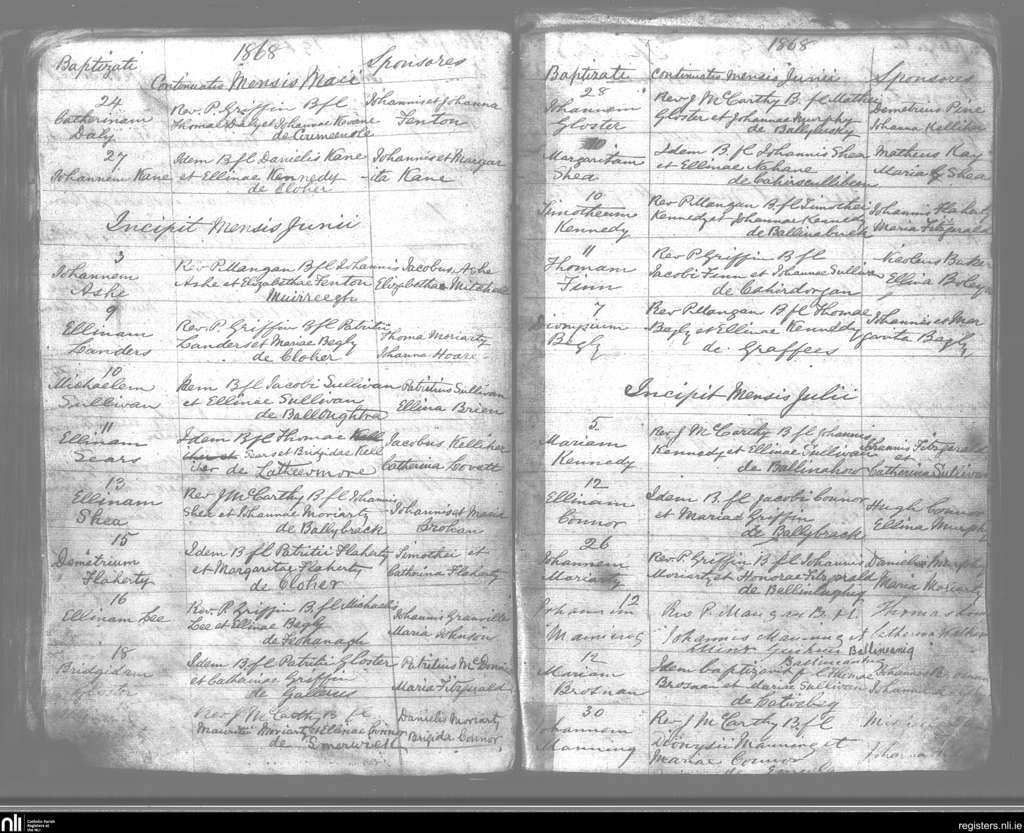 1868
Baptizati
Continuatio Mensis Maii
Sponsores
24
Catherinam
Daly
Rev. P. Griffin B fl
Thomae Daly et Johannae Keane
de
Johannis et Johanna
Fenton
27
Johannem Kane
Idem B fl Danielis Kane
et Ellinae Kennedy
de Cloher
Johannis et Margar
-ita Kane
Incipit Mensis Junii
3
Johannem
Ashe
Rev P. Mangan B fl Johannis
Ashe et Elizabethae Fenton
Muirreegh
Jacobus Ashe
Elizabethae Mitchel
9
Ellinam
Landers
Rev. P. Griffin B fl Patritii
Landers et Mariae Begly
de Cloher
Thoma Moriarty
Johanna Hoare
10
Michaelem
Sullivan
Idem B fl Jacobi Sullivan
et Ellinae Sullivan
de
Patritius Sullivan
Ellina Brien
11
Ellinam
Sears
Idem B fl Thomae
Sears et Bridgidae Kell
iher de Lateevmore
Jacobus Kelliher
Catherina Lovett
13
Ellinam
Shea
Rev J McCarthy B fl Johannis
Shea et Johannae Moriarty
de Ballybrack
Johannis et Maria
Brohan
15
Demetrium
Flaherty
Idem B fl Patritii Flaherty
et Margaritae Flaherty
de Cloher
Timothei et
Catherina Flaherty
16
Ellinam Lee
Rev. P. Griffin B. fl Michaelis
Lee et Ellinae Begly
de Feohanagh
Johannis Granville
Maria Johnson
18
Bridgidam
Gloster
Idem B fl Patritii Gloster
et Catharinae Griffin
de Gallerus
Patritius McDonnell
Maria Fitzgerald
Rev J McCarthy B fl
Mauritii Moriarty et Ellinae Connor
de Smerwick
Danielis Moriarty
Brigida Connor
1868
Baptizati
Continuatio Mensis Junii
Sponsores
28
Johannem
Gloster
Rev J McCarthy B. fl Mathei
Gloster et Johannae Murphy
de
Demetrius Pine
Johanna Kelliher
Margaritam
Shea
Idem B. fl Johannis Shea
et Ellinae Kehane
de
Matheus Kay
Maria Shea
10
Timotheum
Kennedy
Rev P. Mangan B. fl Timothei
Kennedy et Johannae Kennedy
de Ballinabuck
Johannis Flaharty
Maria Fitzgerald
11
Thomam
Finn
Rev P Griffin B fl
Jacobi Finn et Johannae Sullivan
de Cahirdorgan
Nicoleus Baker
Ellina Boley
7
Begly
Rev P. Mangan B. fl Thomae
Begly et Ellinae Kennedy
de Graffees
Johannis et Mar
garita Begly
Incipit Mensis Julii
5
Mariam
Kennedy
Rev J McCarthy B fl Johannis
Kennedy et Ellinae Sullivan
de Ballinahow
Johannis Fitzgerald
et
Catherina Sullivan
12
Ellinam
Connor
Idem B. fl Jacobi Connor
et Mariae Griffin
de Ballybrack
Hugh Connor
Ellina Murphy
26
Johannem
Moriarty
Rev. P. Griffin B fl Johannis
Moriarty et Honorae Fitzgerald
de
Danielis Murphy
Maria Moriarty
12
Johannim
Rev P. Mangan B. fl.
Johannis Manning et
Ballineanig
Thomas
Catherina
12
Mariam
Brosnan
Idem baptizavit fl Thomae
Brosnan et Mariae Sullivan
de
Johannes
Johanna
30
Johannem
Manning
Rev J McCarthy B. fl
Dionysii Manning et
Mariae Connor
nli
Catholic Parish
Registers at
the NLI
registers.nli.ie